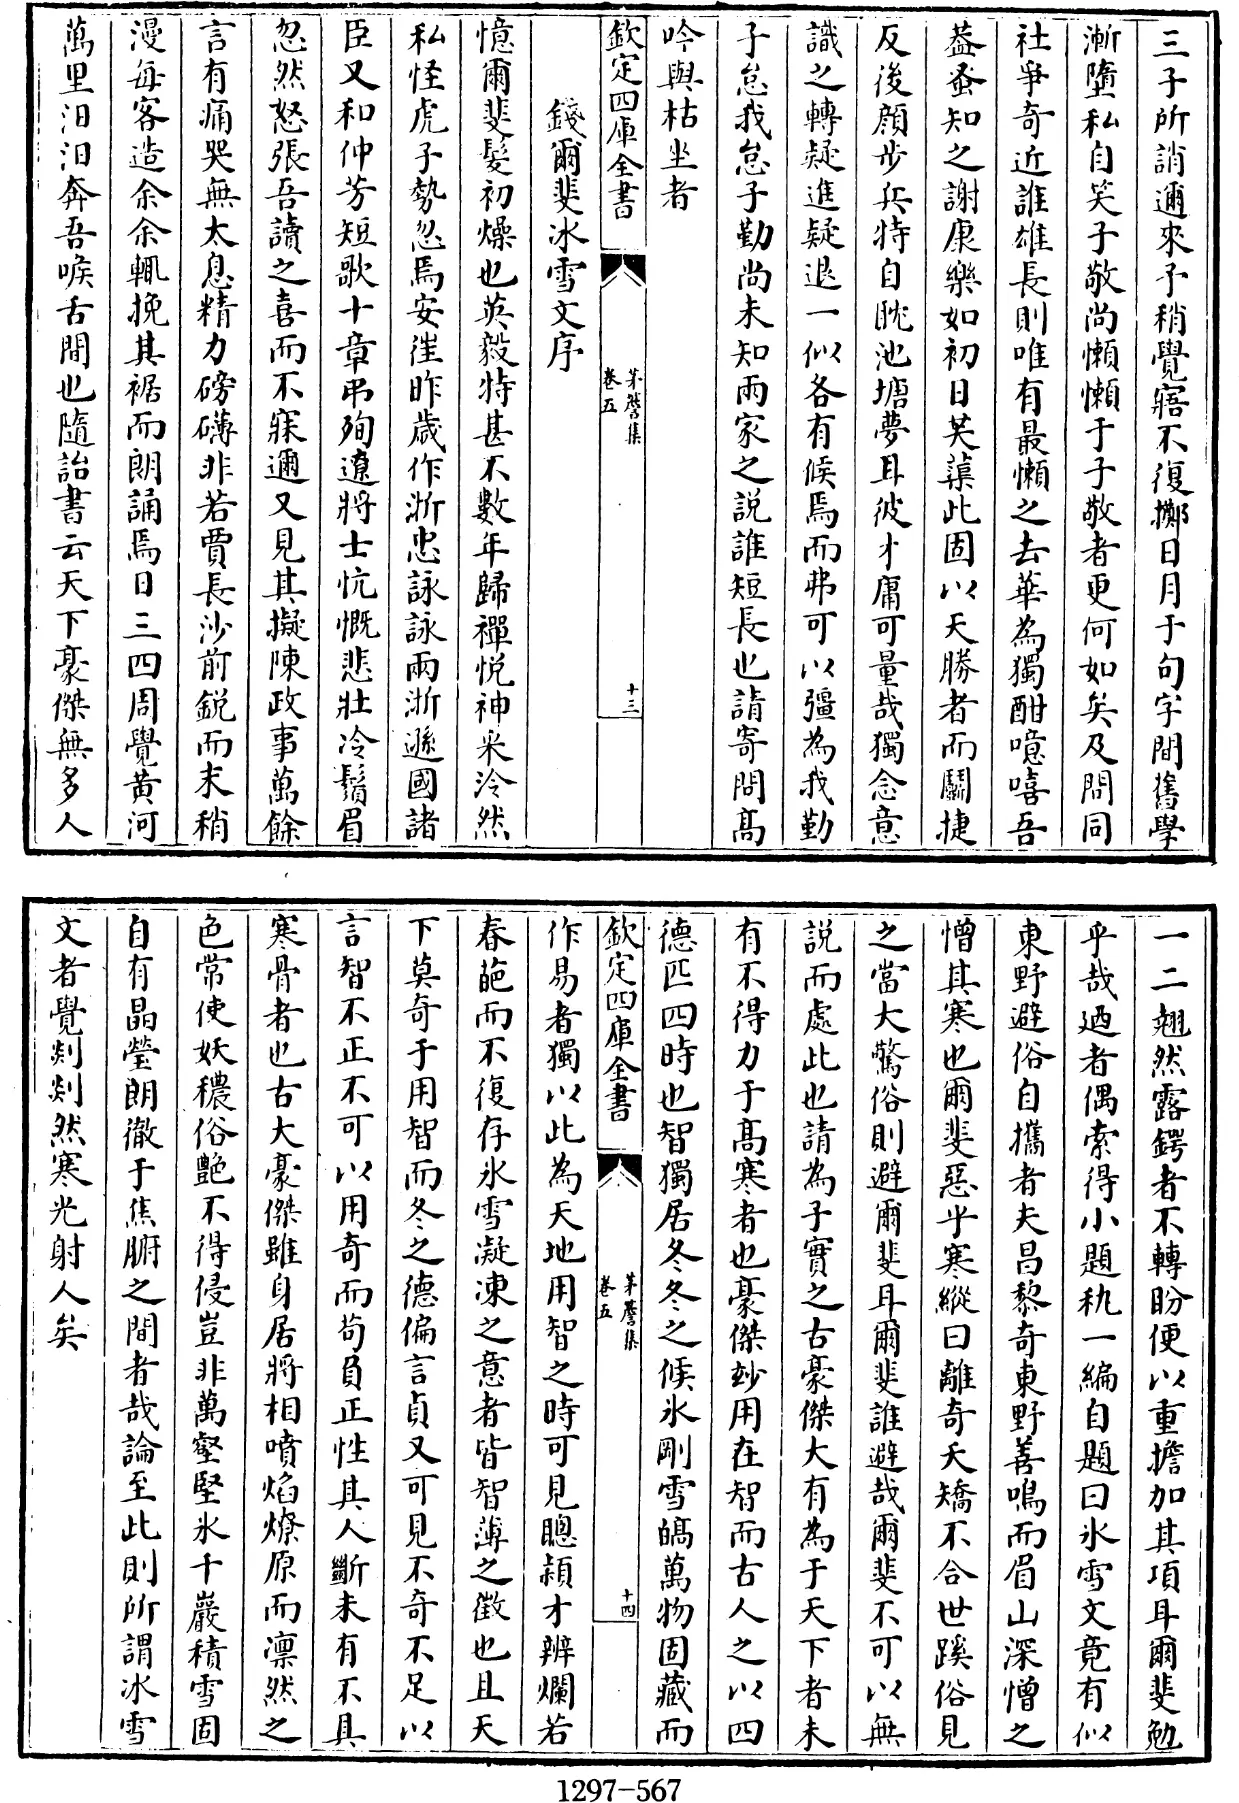 三子所誚邇來予稍覺寤不復擲日月于句字間舊學
漸墮私自笑子敬尚懶懶于子敬者更何如矣及問同
社爭奇近誰雄長則唯有最懶之去華為獨酣噫嘻吾
葢蚤知之謝康樂如初日芙蕖此固以天勝者而鬭捷
反後顔步兵特自眈池塘夢耳彼才庸可量哉獨念意
識之轉疑進疑退一似各有候焉而弗可以彊為我勤
子怠我怠子勤尚未知兩家之説誰短長也請寄問高
吟與枯坐者
欽定四庫全書
茅簷集
卷五
十三
錢爾斐冰雪文序
憶爾斐髮初燥也英毅特甚不數年歸禪悦神采泠然
私怪虎子勢忽焉安徃昨歳作浙忠詠詠兩浙遜國諸
臣又和仲芳短歌十章弔殉遼將士忼慨悲壯冷鬚眉
忽然怒張吾讀之喜而不寐邇又見其擬陳政事萬餘
言有痛哭無太息精力磅礴非若賈長沙前鋭而末稍
漫每客造余余輒挽其裾而朗誦焉日三四周覺黄河
萬里汨汨奔吾喉舌間也隨詒書云天下豪傑無多人
一二翹然露鍔者不轉盼便以重擔加其項耳爾斐勉
乎哉廼者偶索得小題秇一編自題曰氷雪文竟有似
東野避俗自攜者夫昌黎奇東野善鳴而眉山深憎之
憎其寒也爾斐惡乎寒縱曰離奇夭矯不合世蹊俗見
之當大驚俗則避爾斐耳爾斐誰避哉爾斐不可以無
説而處此也請為子實之古豪傑大有為于天下者未
有不得力于高寒者也豪傑玅用在智而古人之以四
德匹四時也智獨居冬冬之候氷剛雪皜萬物固藏而
欽定四庫全書
茅簷集
卷五
十四
作易者獨以此為天地用智之時可見聰穎才辨爛若
春葩而不復存氷雪凝凍之意者皆智薄之徵也且天
下莫奇于用智而冬之德偏言貞又可見不奇不足以
言智不正不可以用奇而苟負正性其人斷未有不具
寒骨者也古大豪傑雖身居將相噴焰燎原而凛然之
色常使妖穠俗艷不得侵豈非萬壑堅氷千巖積雪固
自有晶瑩朗徹于焦腑之間者哉論至此則所謂冰雪
文者覺剡剡然寒光射人矣
1297-567